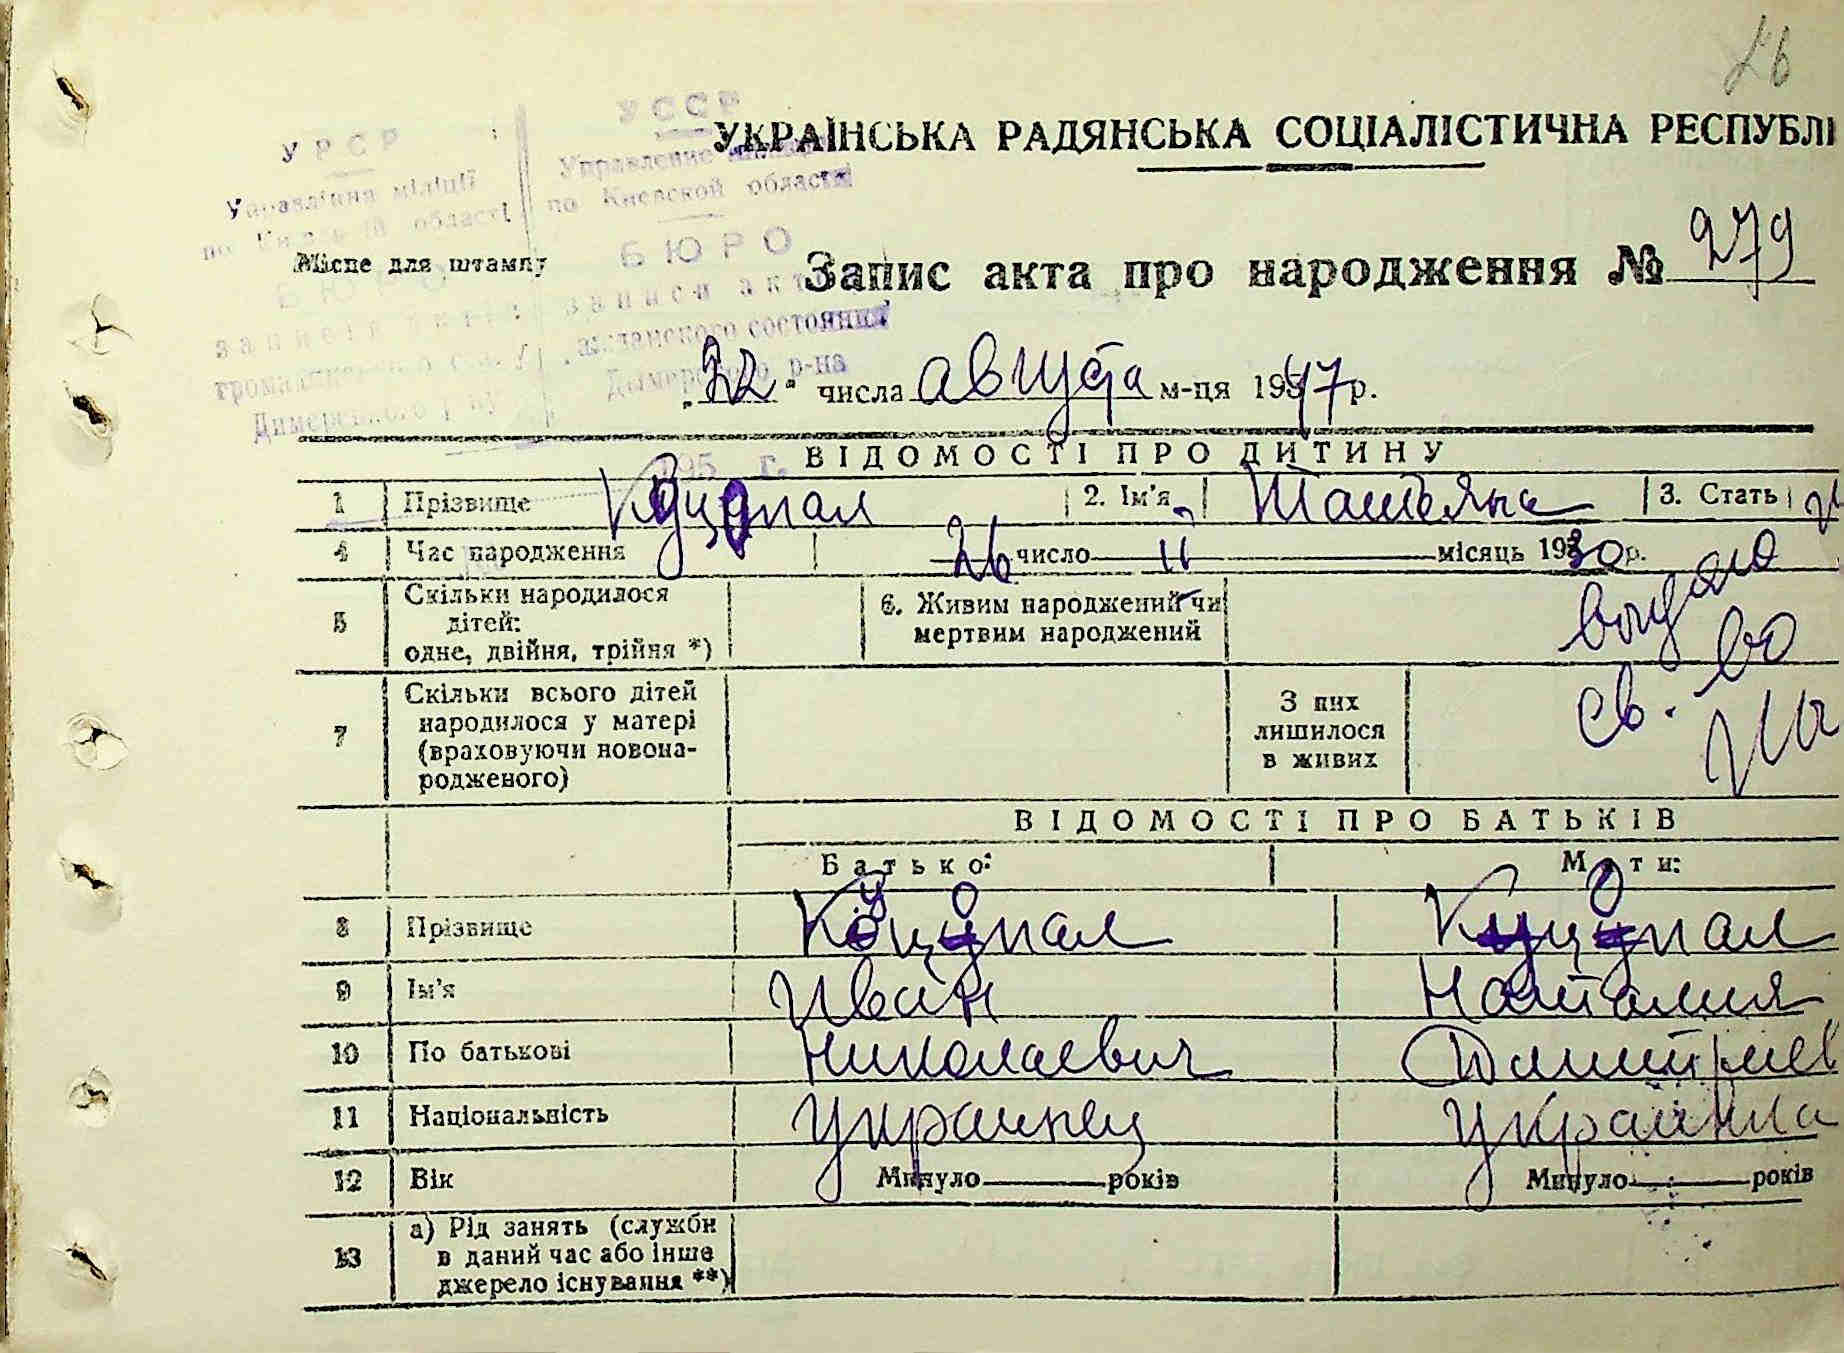 26
УРСР
Управління міліції
по Київській області
УССР
Управление милиции
по Киевской области
БЮРО
записи актов
гражданского состояния
Дымерского р-на
195 г.
УКРАЇНСЬКА РАДЯНСЬКА СОЦІАЛІСТИЧНА РЕСПУБЛІ
Місце для штампу
БЮРО
записів актів
громадянського стану
Димерського р-ну
Запис акта про народження № 279
„22" числа августа м-ця 1947 р.
ВІДОМОСТІ ПРО ДИТИНУ
1 Прізвище Куцопал 2. Ім'я Татьяна 3. Стать
4 Час народження 26 число II місяць 1930 р.
5 Скільки народилося дітей: одне, двійня, трійня *) 6. Живим народжений чи мертвим народжений
выдано
св. во
7 Скільки всього дітей народилося у матері (враховуючи новонародженого) З них лишилося в живих
ВІДОМОСТІ ПРО БАТЬКІВ
Батько: Мати:
8 Прізвище Куцопал Куцопал
9 Ім'я Иван Наталия
10 По батькові Николаевич Димитриев
11 Національність Украинец Украинка
12 Вік Минуло років Минуло років
13 а) Рід занять (служби в даний час або інше джерело існування **)